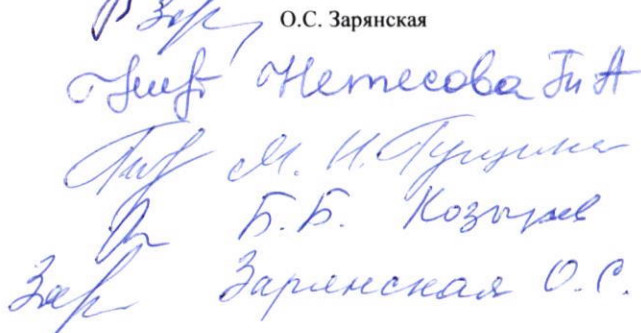 О.С. Зарянская
Нетесова
М. Н. Гущина
Б.Б. Козырев
Зарянская О.С.